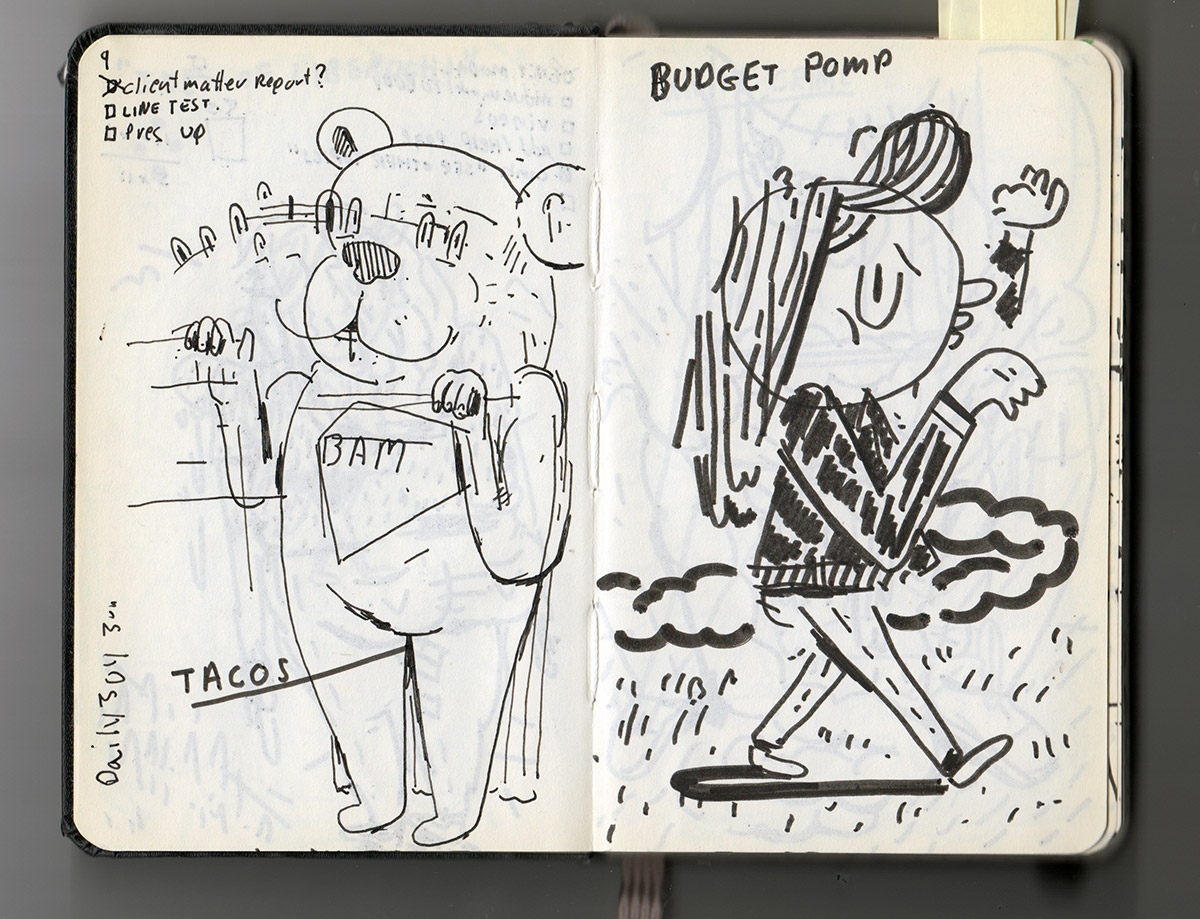 9
client matter Report?
LINE TEST.
Pres up
BAM
TACOS
BUDGET POMP